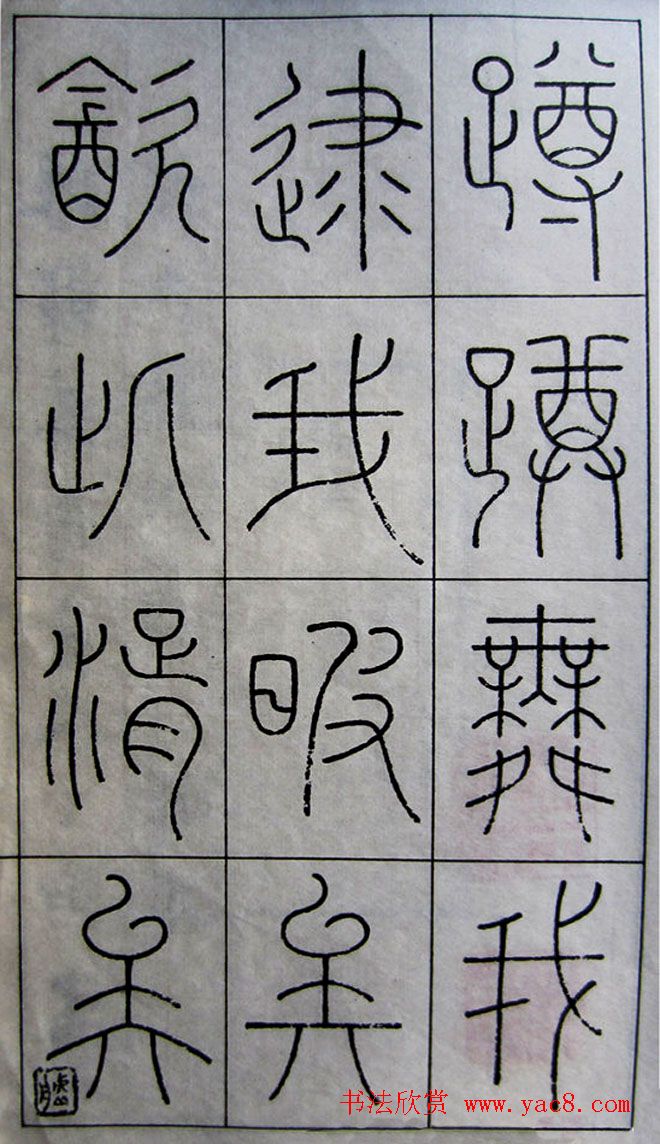 蹲蹲舞我
逮我暇矣
飲此湑矣
书法欣赏 www.yac8.com